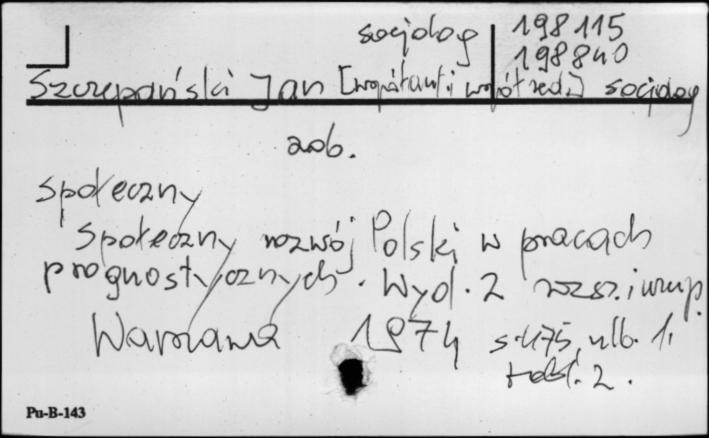 socjolog 198115
198840
Szczepański Jan [współaut. i współred.] socjolog
zob.
Społeczny
Społeczny rozwój Polski w pracach
prognostycznych. Wyd. 2 rozsz. i uzup.
Warszawa 1974 s. 475, nlb. 1.
tabl. 2.
Pu-B-143